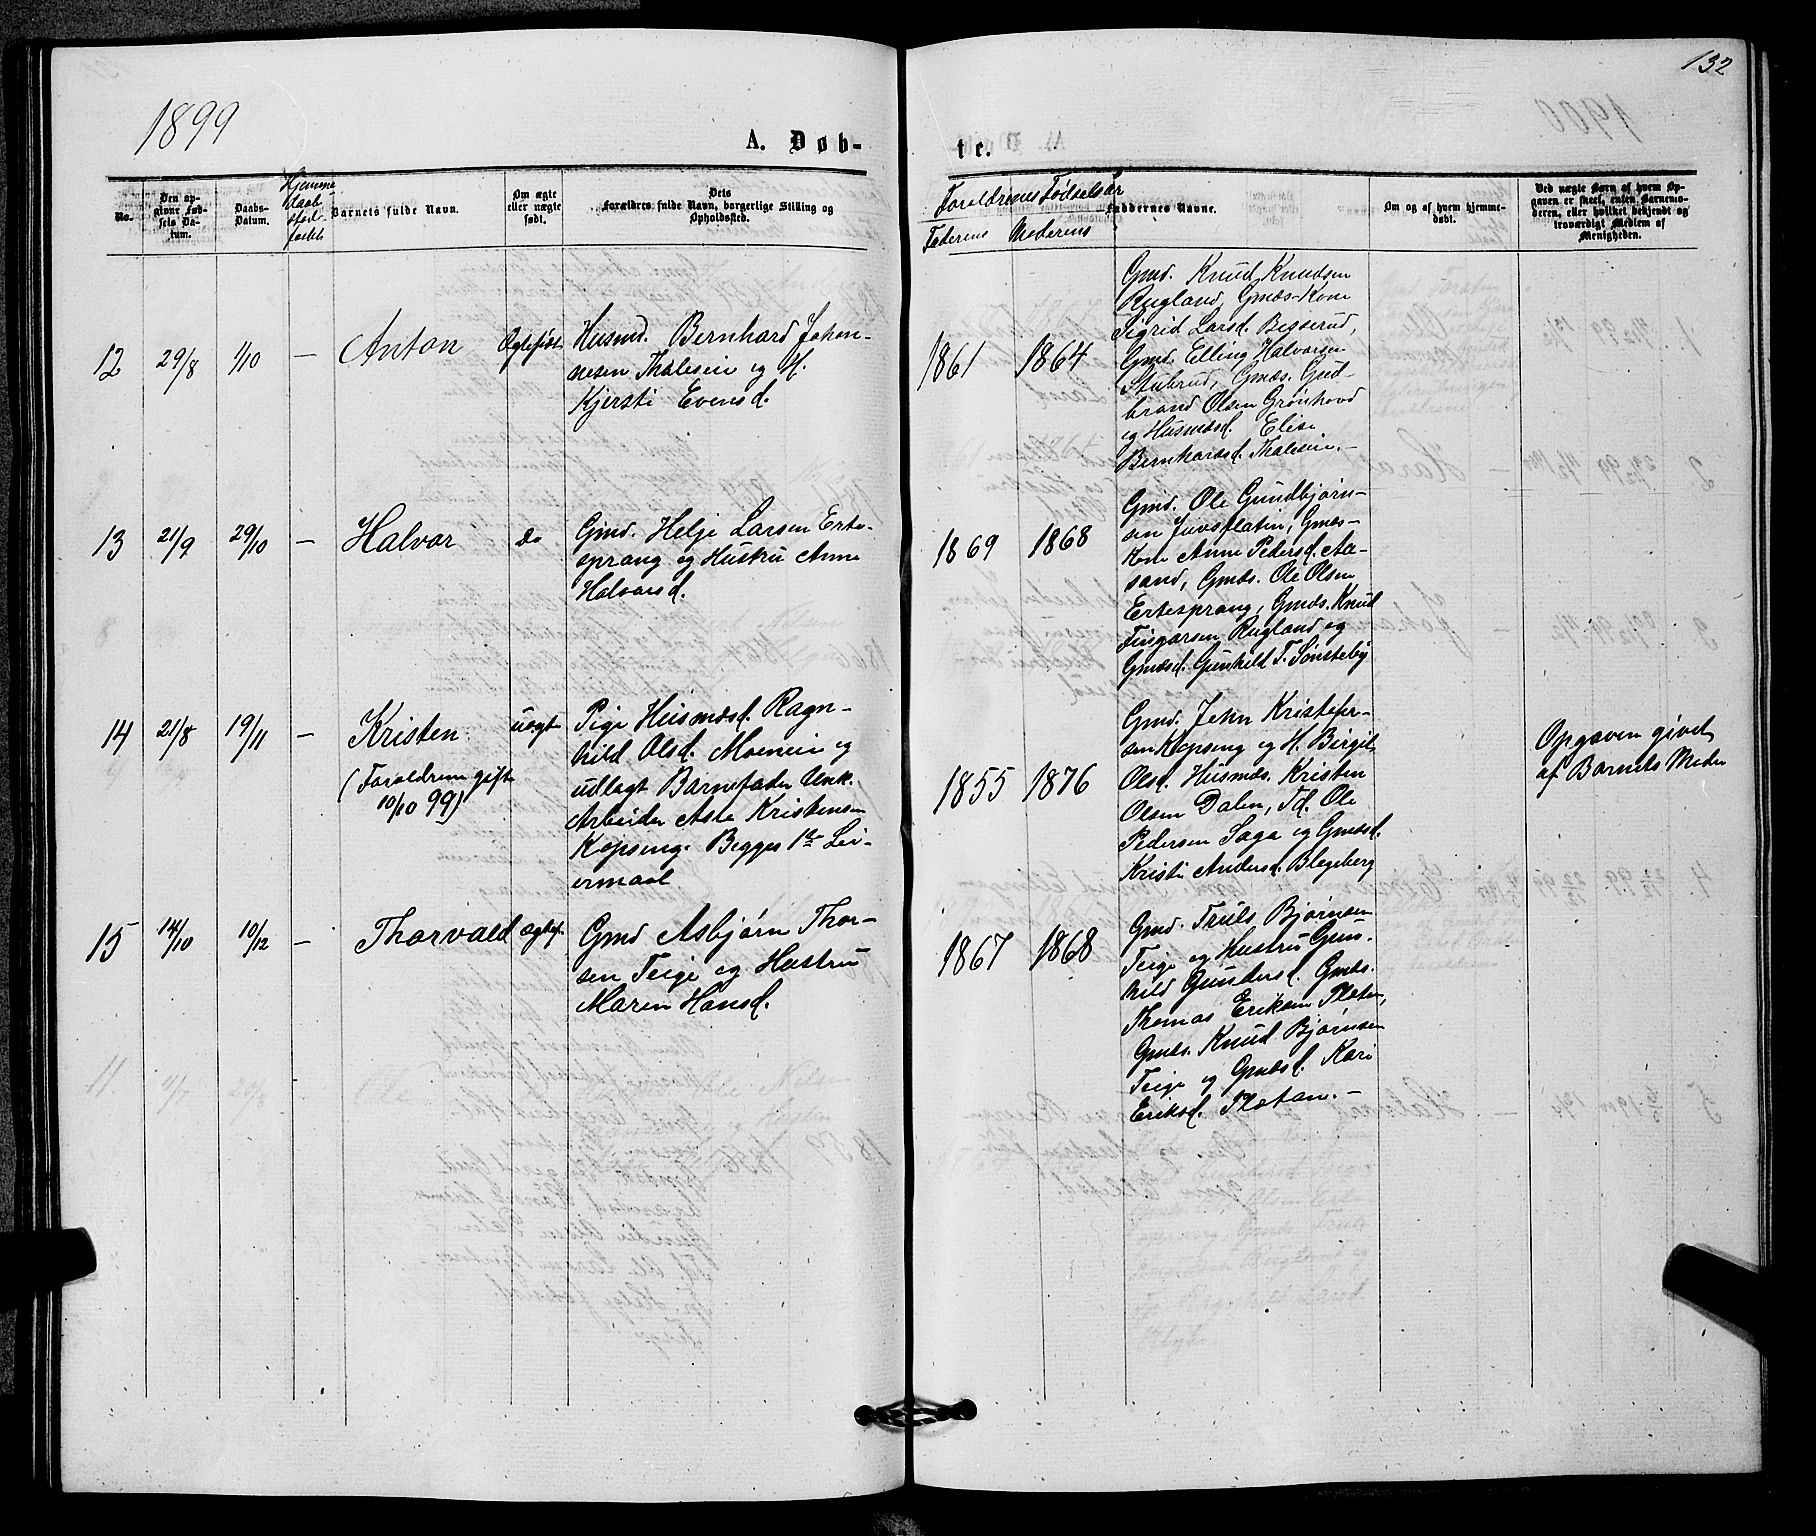 132
1899
A. Døb-
te.
No.
Den op-
givne Fød-
sels Da-
tum.
Daabs-
Datum.
Hjemme
daab
sted-
fæstet
Barnets fulde Navn.
Om ægte
eller uægte
født.
Dets
Forældres fulde Navn, borgerlige Stilling og
Opholdssted.
Forældrenes Fødselsår
Faderens Moderens
Faddernes Navne.
Om og af hvem hjemme-
døbt.
Ved uægte Børn af hvem Op-
gaven er skeet, enten Barnemo-
deren, eller hvilket bekjendt og
troværdigt Medlem af
Menigheden.
12 29/8 1/10 — Anton Ægtefødt
Husmd. Bernhard Johan-
nesen Thaliseie og H.
Kjersti Evensd.
1861 1864
Gmd. Knud Knudsen
Rugland, Gmds-Kone
Sigrid Larsd. Begserud,
Gmd. Elling Halvorsen
Stubrud, Gmds. Gud-
brand Olsen Grønhovd
og Husmdsd. Elise
Bernhardsd. Thaliseie.—
13 21/9 29/10 — Halvor do
Gmd. Helje Larsen Erte-
sprang og Hustru Anne
Halvorsd.
1869 1868
Gmd. Ole Gundbjørn-
sen Juvsplatin, Gmds-
Kone Anne Pedersd. Aa-
sand, Gmds. Ole Olsen
Ertesprang, Gmds. Knud
Fingarsen Rugland og
Gmdsd. Gunhild T. Sønsteby
14 21/8 19/11 — Kristen uægte
(Forældrene gifte
10/10 99)
Pige Husmdsd. Ragn-
hild Olsd. Moeneie og
udlagt Barnefader Unk.
Arbeider Asle Kristensen
Kopseng. Begges 1ste Lei-
ermaal
1855 1876
Gmd. John Kristofer-
sen Kopseng og H. Birgit
Olsd. Husmds. Kristen
Olsen Dalen, Td. Ole
Pedersen Saga og Gmdsd.
Kristi Andersd. Blegeberg
Opgaven givet
af Barnets Moder
15 14/10 10/12 — Thorvald ægtef.
Gmd Asbjørn Thor-
sen Teige og Hustru
Maren Hansd.
1867 1868
Gmd. Truls Bjørnsen
Teige og Hustru Gun-
hild Gundersd. Gmds.
Thomas Eriksen Platen,
Gmds. Knud Bjørnsen
Teige og Gmdsd. Kari
Eriksd. Platan.—